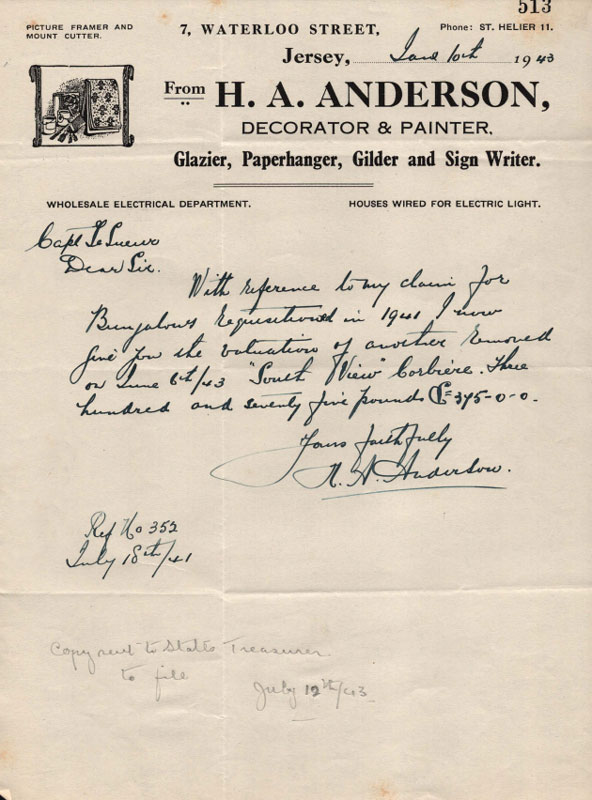 513
PICTURE FRAMER AND
MOUNT CUTTER.
7, WATERLOO STREET,
Phone: ST. HELIER 11.
Jersey, 10th 1943
From H. A. ANDERSON,
DECORATOR & PAINTER,
Glazier, Paperhanger, Gilder and Sign Writer.
WHOLESALE ELECTRICAL DEPARTMENT.
HOUSES WIRED FOR ELECTRIC LIGHT.
Capt Le Sueur
Dear Sir.
With reference to my claim for
Bungalows Requisitioned in 1941 I now
give you the valuation of another removed
on June 6th/43 "South View" Corbière. Three
hundred and seventy five pounds £375-0-0.
Yours faithfully
H. A. Anderson.
Ref No 352
July 18th/41
Copy sent to States Treasurer
to file
July 12th/43